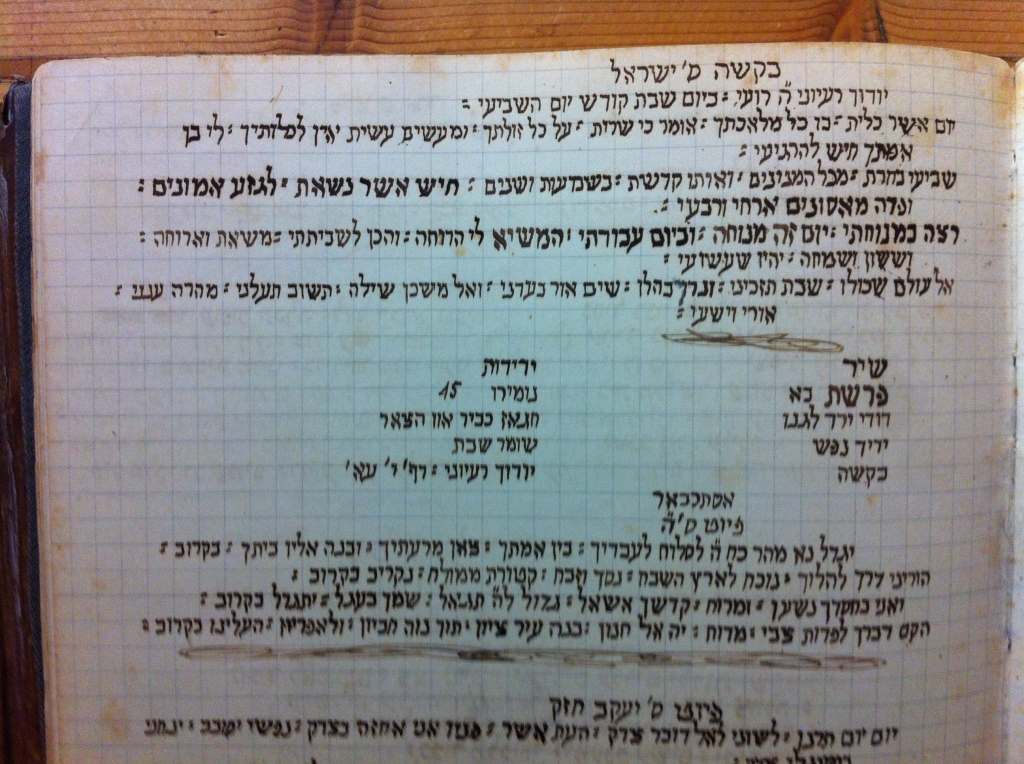 בקשה ס' ישראל
יודוך רעיוני ה' רועי : ביום שבת קודש יום השביעי :
יום אשר כלית : בו כל מלאכתך : אומר כי שדות : על כל זולתך : ומעשים עשית אין לפלותיך : לי בן
אמתך חיש להרגיעי :
שביעי בחרת : מכל המנינים : ואותו קדשת : בשמיעות ושנים : חיש אשר נשאת : לגזע אמונים :
ופדה מאסונים ארחי ורבעי :
רצה במנוחתי : יום זה מנוחה : וביום עבודתי : המשיא לי הרוחה : והכן לשביתתי : משאת וארוחה :
וששון ושמחה : יהיו שעשועי :
אל עולם שכולו : שבת תזכיני : ונרך בהלו : שים אור בעדני : ואל משכן שילה : תשוב תעלני : מהרה ענני :
אורי וישעי :
שיר ידידות
פרשת בא נומירו 15
דודי ירד לגנו חגאז כביר או הצאר
ידיד נפש שומר שבת
בקשה יודוך רעיוני : דף י' ע"א
אסתכבאר
פיוט ס' ה'
יגדל נא מהר כח ה' לסלוח לעבדיך : בין אמתך : צאן מרעתיך : ובנה אלין ביתך : בקרוב :
הוריני דרך להלוך : נוכח לארץ השבח : נסך וזבח : קטורת ממולח : נקריב בקרוב :
ואני בחסדך נשען : ומרוח : קדשך אשאל : גדול לה' תגאל : שמך בעגל : יתגדל בקרוב :
הקם דברך לפדות צבי : מדוח : יה אל חנון : בנה עיר ציון : תוך נוה חביון : ולאפריון : העלינו בקרוב :
פיוט ס' יעקב חזק
יום יום תרנן : לשוני לאל דובר צדק : העת אשר : אני אחזה בצדק : נפשי